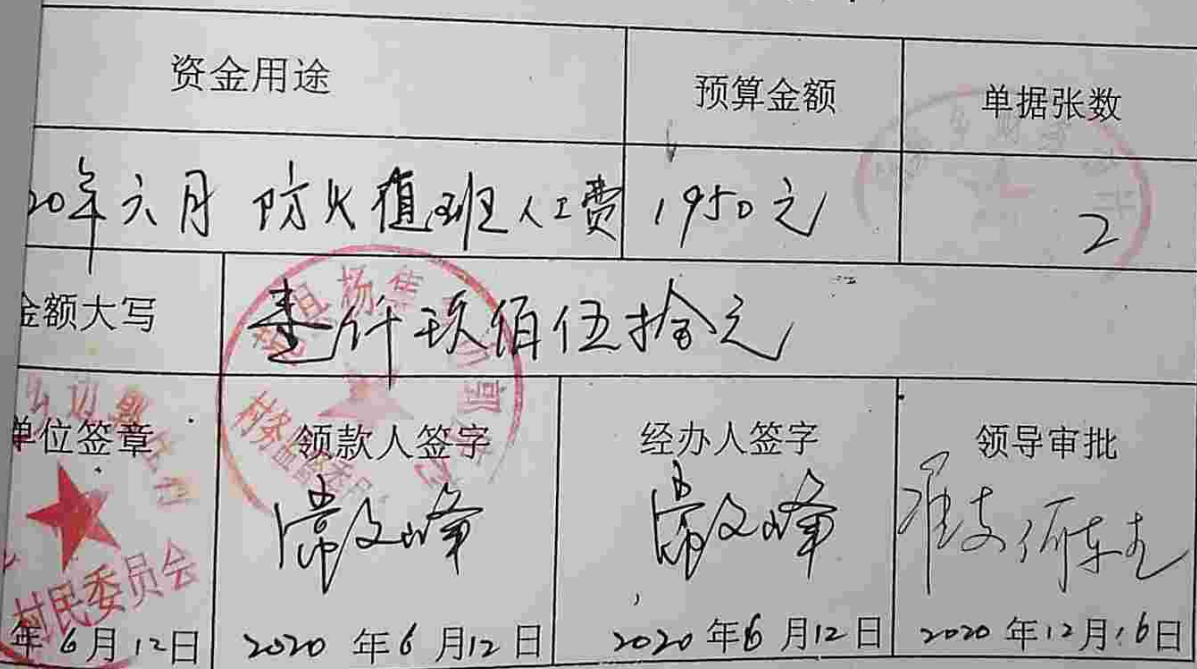 资金用途 预算金额 单据张数
20年六月 防火值班人工费 1950元 2
金额大写 壹仟玖佰伍拾元
单位签章 领款人签字 经办人签字 领导审批
常文峰 常文峰 准支
村务监督委员
村民委员会
年6月12日 2020年6月12日 2020年6月12日 2020年12月16日